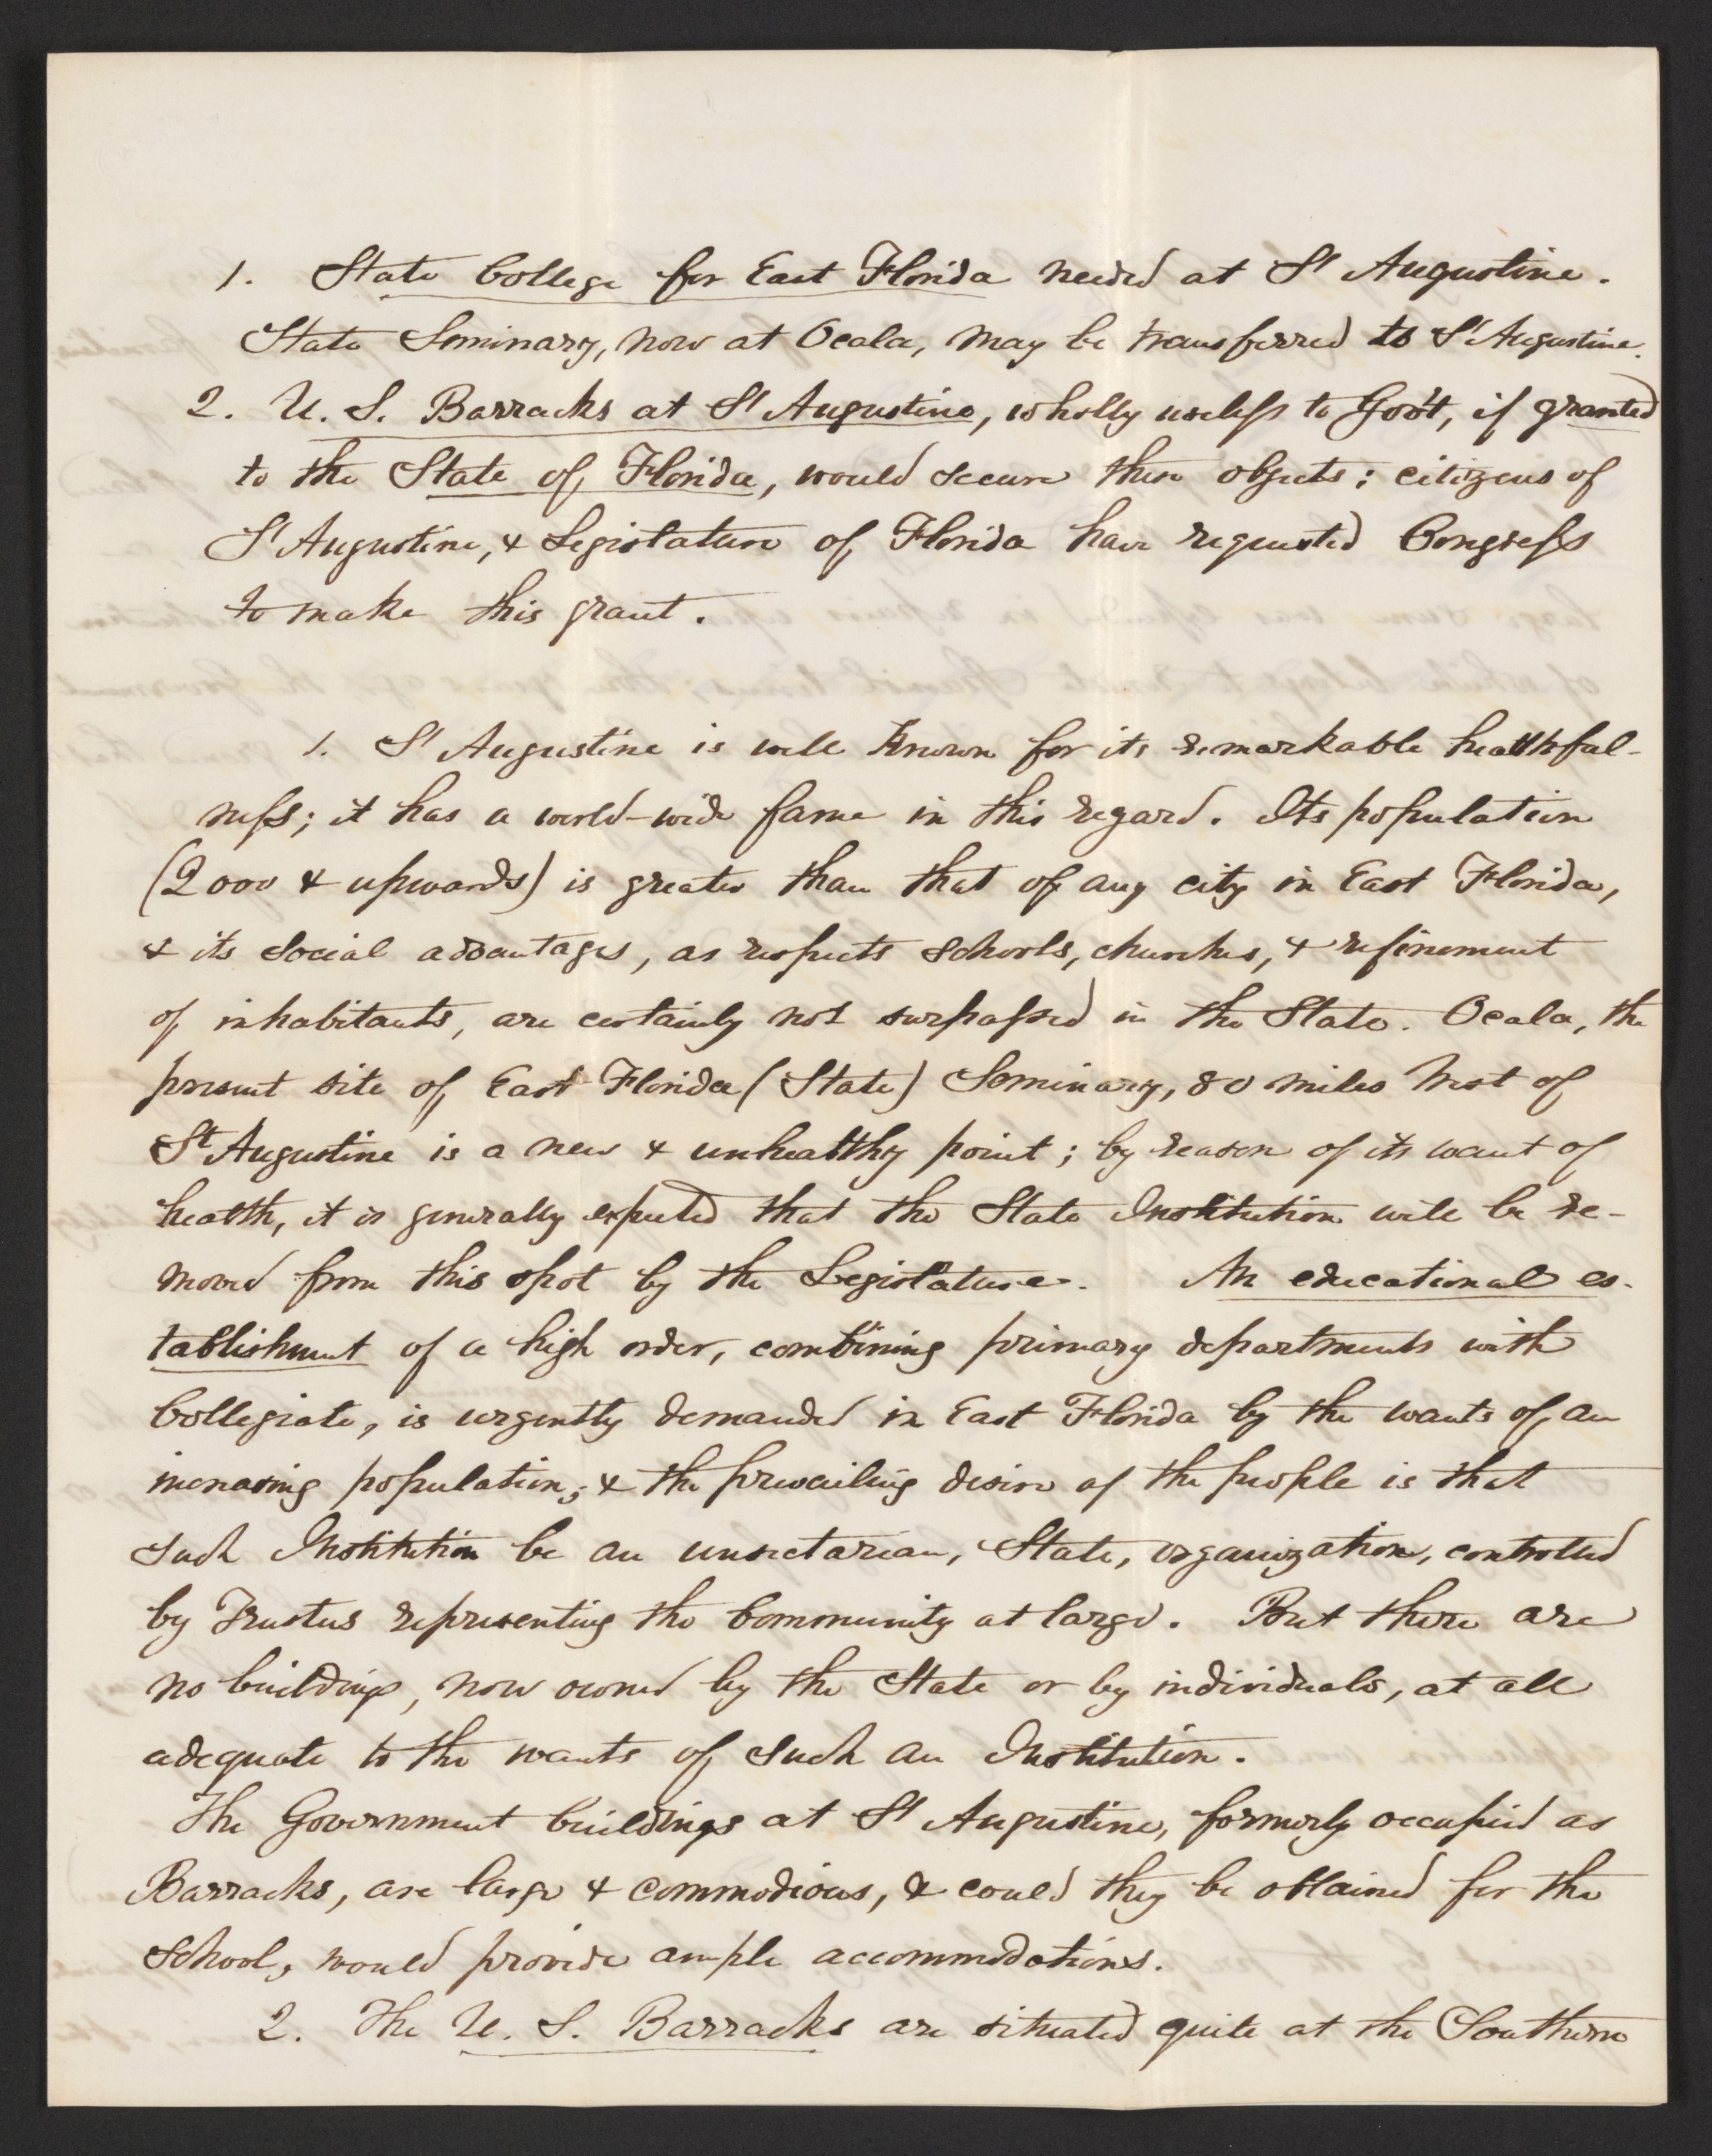 1. State College for East Florida needed at St Augustine.
State Seminary, now at Ocala, may be transferred to St Augustine.
2. U. S. Barracks at St Augustine, wholly useless to Gov't, if granted
to the State of Florida, would secure these objects; citizens of
St Augustine, & Legislature of Florida have requested Congress
to make this grant.
1. St Augustine is well known for its remarkable healthful-
ness; it has a world-wide fame in this regard. Its population
(2000 & upwards) is greater than that of any city in East Florida,
& its social advantages, as respects schools, churches, & refinement
of inhabitants, are certainly not surpassed in the State. Ocala, the
present site of East Florida (State) Seminary, 80 miles West of
St Augustine is a new & unhealthy point; by reason of its want of
health, it is generally expected that the State Institution will be re-
moved from this spot by the Legislature. An educational es-
tablishment of a high order, combining primary departments with
Collegiate, is urgently demanded in East Florida by the wants of an
increasing population; & the prevailing desire of the people is that
such Institution be an unsectarian, State, organization, controlled
by Trustees representing the Community at large. But there are
no buildings, now owned by the State or by individuals, at all
adequate to the wants of such an Institution.
The Government buildings at St Augustine, formerly occupied as
Barracks, are large & commodious, & could they be obtained for the
School, would provide ample accommodations.
2. The U. S. Barracks are situated quite at the Southern